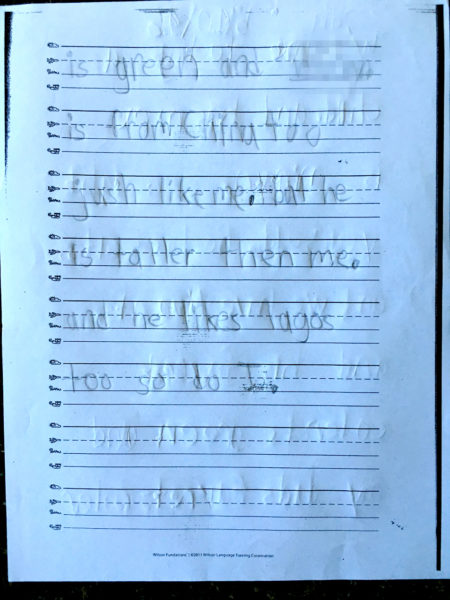 is green and
is from China too
just like me. but he
is taller then me.
and he likes tagos
too so do I
Wilson Fundations | ©2011 Wilson Language Training Corporation